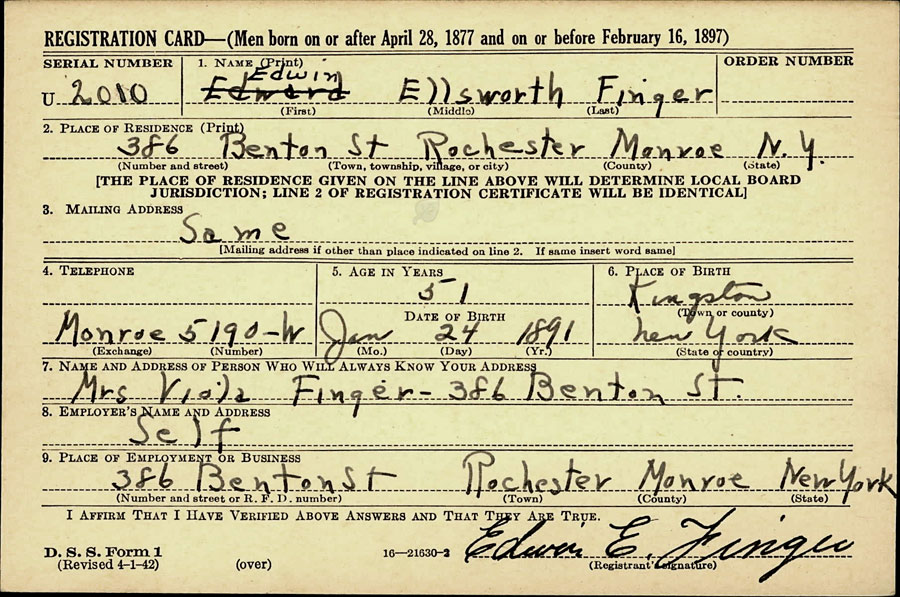 REGISTRATION CARD—(Men born on or after April 28, 1877 and on or before February 16, 1897)
SERIAL NUMBER 1. NAME (Print) ORDER NUMBER
Edwin
U 2010 Edward Ellsworth Finger
(First) (Middle) (Last)
2. PLACE OF RESIDENCE (Print)
386 Benton St Rochester Monroe N.Y.
(Number and street) (Town, township, village, or city) (County) (State)
[THE PLACE OF RESIDENCE GIVEN ON THE LINE ABOVE WILL DETERMINE LOCAL BOARD
JURISDICTION; LINE 2 OF REGISTRATION CERTIFICATE WILL BE IDENTICAL]
3. MAILING ADDRESS
Same
[Mailing address if other than place indicated on line 2. If same insert word same]
4. TELEPHONE 5. AGE IN YEARS 6. PLACE OF BIRTH
51 Kingston
DATE OF BIRTH (Town or county)
Monroe 5190-W Jan 24 1891 New York
(Exchange) (Number) (Mo.) (Day) (Yr.) (State or country)
7. NAME AND ADDRESS OF PERSON WHO WILL ALWAYS KNOW YOUR ADDRESS
Mrs Viola Finger- 386 Benton St.
8. EMPLOYER'S NAME AND ADDRESS
Self
9. PLACE OF EMPLOYMENT OR BUSINESS
386 Benton St Rochester Monroe New York
(Number and street or R. F. D. number) (Town) (County) (State)
I AFFIRM THAT I HAVE VERIFIED ABOVE ANSWERS AND THAT THEY ARE TRUE.
D. S. S. Form 1 16—21630-2 Edwin E. Finger
(Revised 4-1-42) (over) (Registrant's signature)